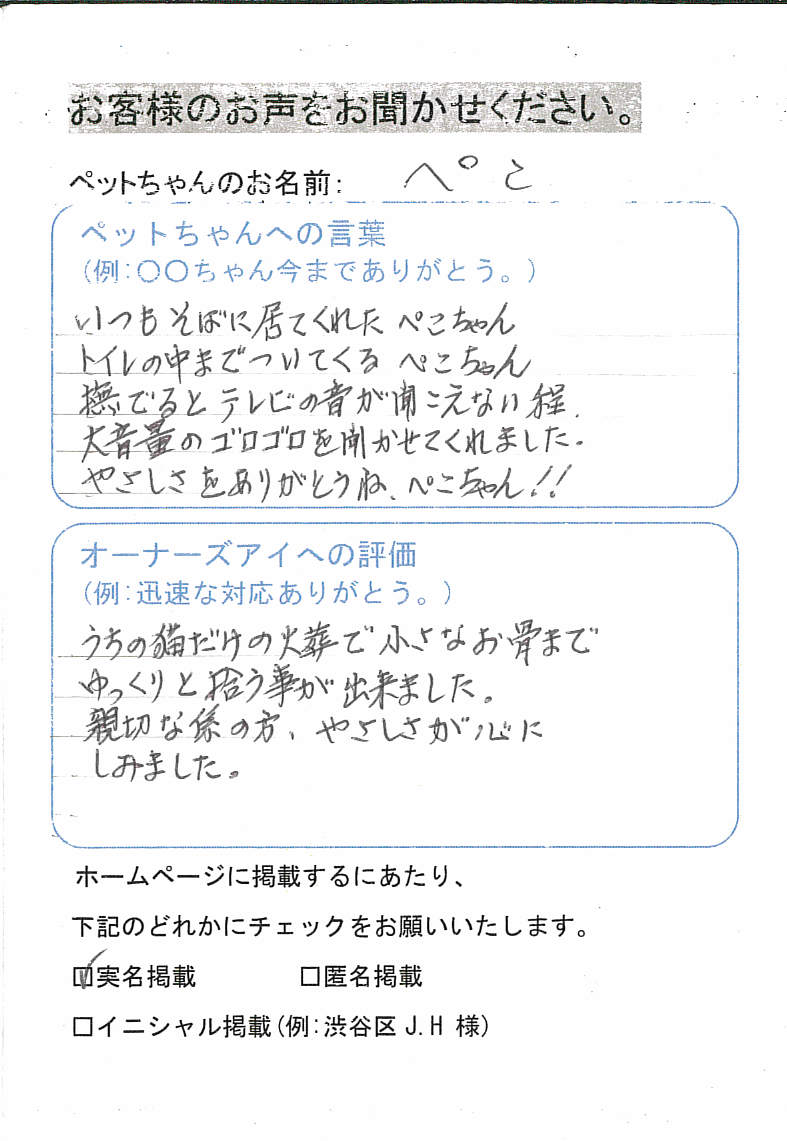 お客様のお声をお聞かせください。
ペットちゃんのお名前: ぺこ
ペットちゃんへの言葉
(例:〇〇ちゃん今までありがとう。)
いつもそばに居てくれたぺこちゃん
トイレの中までついてくるぺこちゃん
撫でるとテレビの音が聞こえない程、
大音量のゴロゴロを聞かせてくれました。
やさしさをありがとうね、ぺこちゃん!!
オーナーズアイへの評価
(例:迅速な対応ありがとう。)
うちの猫だけの火葬で小さなお骨まで
ゆっくりと拾う事が出来ました。
親切な係の方、やさしさが心に
しみました。
ホームページに掲載するにあたり、
下記のどれかにチェックをお願いいたします。
☑実名掲載 □匿名掲載
□イニシャル掲載(例:渋谷区J.H 様)